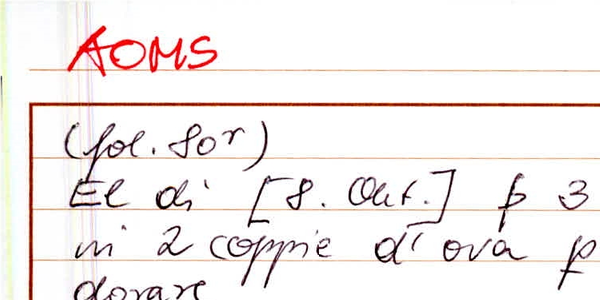 AOMS
(fol. 80r)
El di [8. Ott.] p 3
in 2 coppie d'ova p
dorare